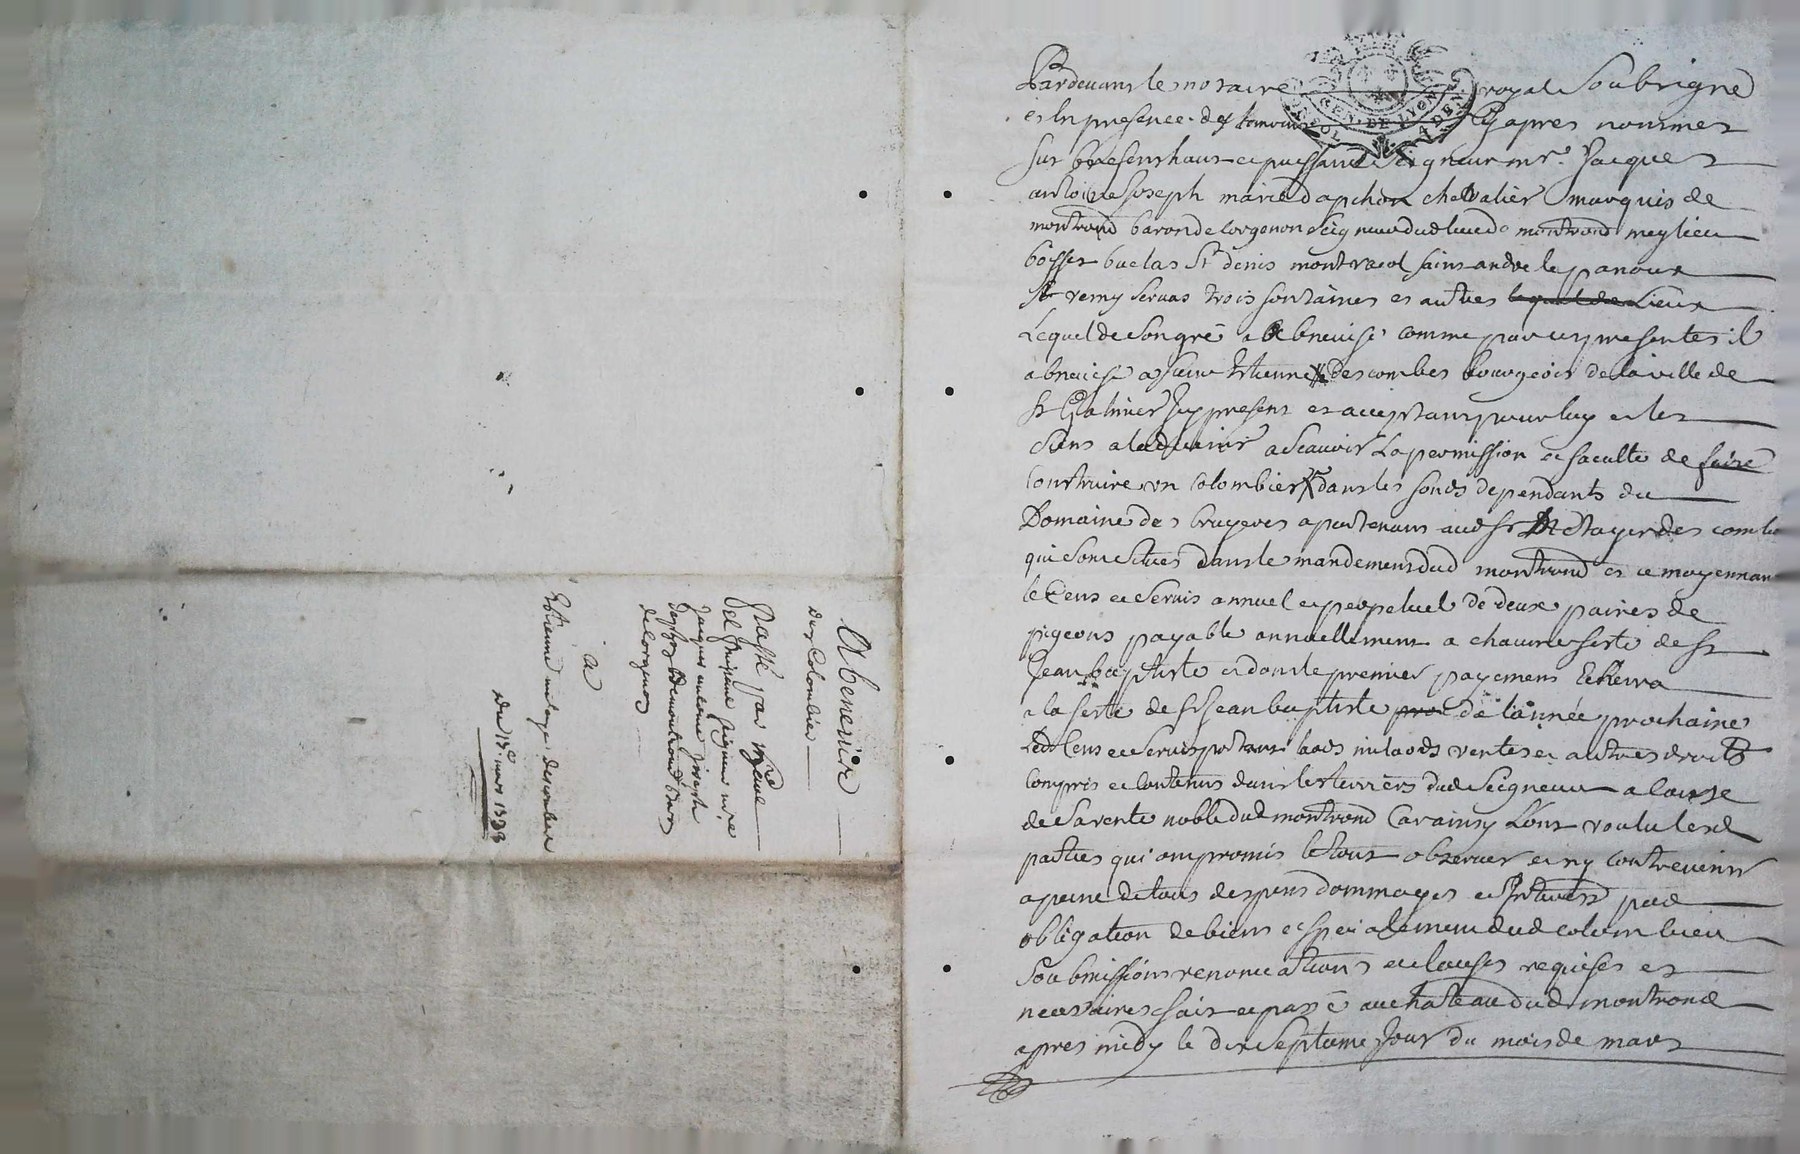 Abenevice
des Colombier
Passé par
Jacques antoine Joseph
de Corgenon
a
Estienne metayer descombes
du 17e mars
Pardevant le notaire royal Soubsigné
et en presence des temoins Cy apres nommes
fut present haut et puissant Seigneur mre. Jacques
antoine Joseph marie dapchon chevalier marquis de
montrond baron de Corgenon Seigneur dud lieu de montrond meylieu
boisset buclas St denis montracol saint andre le panoux
St remy servas trois fontaines et autres lequel de Lieux
Lequel de Son gré a abenevisé comme par ces presentes il
abenevise a sieur Etienne descombes bourgeois de la ville de
St Galmier Icy present et acceptant pour luy et les
Siens a ladvenir a Scauoir La permission et faculté de faire
Construire un Colombier dans les fonds dependants du
Domaine des bruyeres apartenant aud Sr Metayer des combes
qui Sont Situés dans le mandement dud montrond et ce moyennant
le Cens et Servis annuel et perpetuel de deux paires de
pigeons payable annuellement a chacune feste de St
Jean baptiste et dont le premier payement Echerra
a la feste de St Jean baptiste de l'année prochaine
Led Cens et Servis portant laods milaods ventes et autres droits
Compris et Contenus dans les terriers dud Seigneur a cause
de Sa rente noble dud montrond Car ainsy L'ont voulu lesd
parties qui ont promis le tout observer et ny contrevenir
a peine de tous despens dommages et Interests par
obligation de biens et specialement dud colombier
Soubmissions renonciations et clauses requises et
necessaires fait et passé au chateau dud montrond
apres midy le dix Septieme Jour du mois de mars